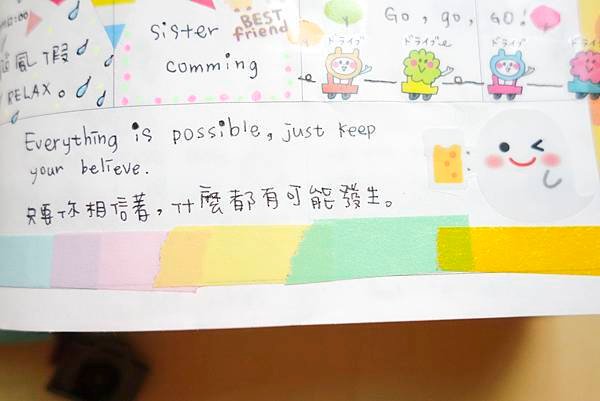 颱風假
RELAX。
sister
comming
BEST
friend
GO, go, GO!
ドライブ
ドライブ
ドライブ
Everything is possible, just keep
your believe.
只要你相信著，什麼都有可能發生。